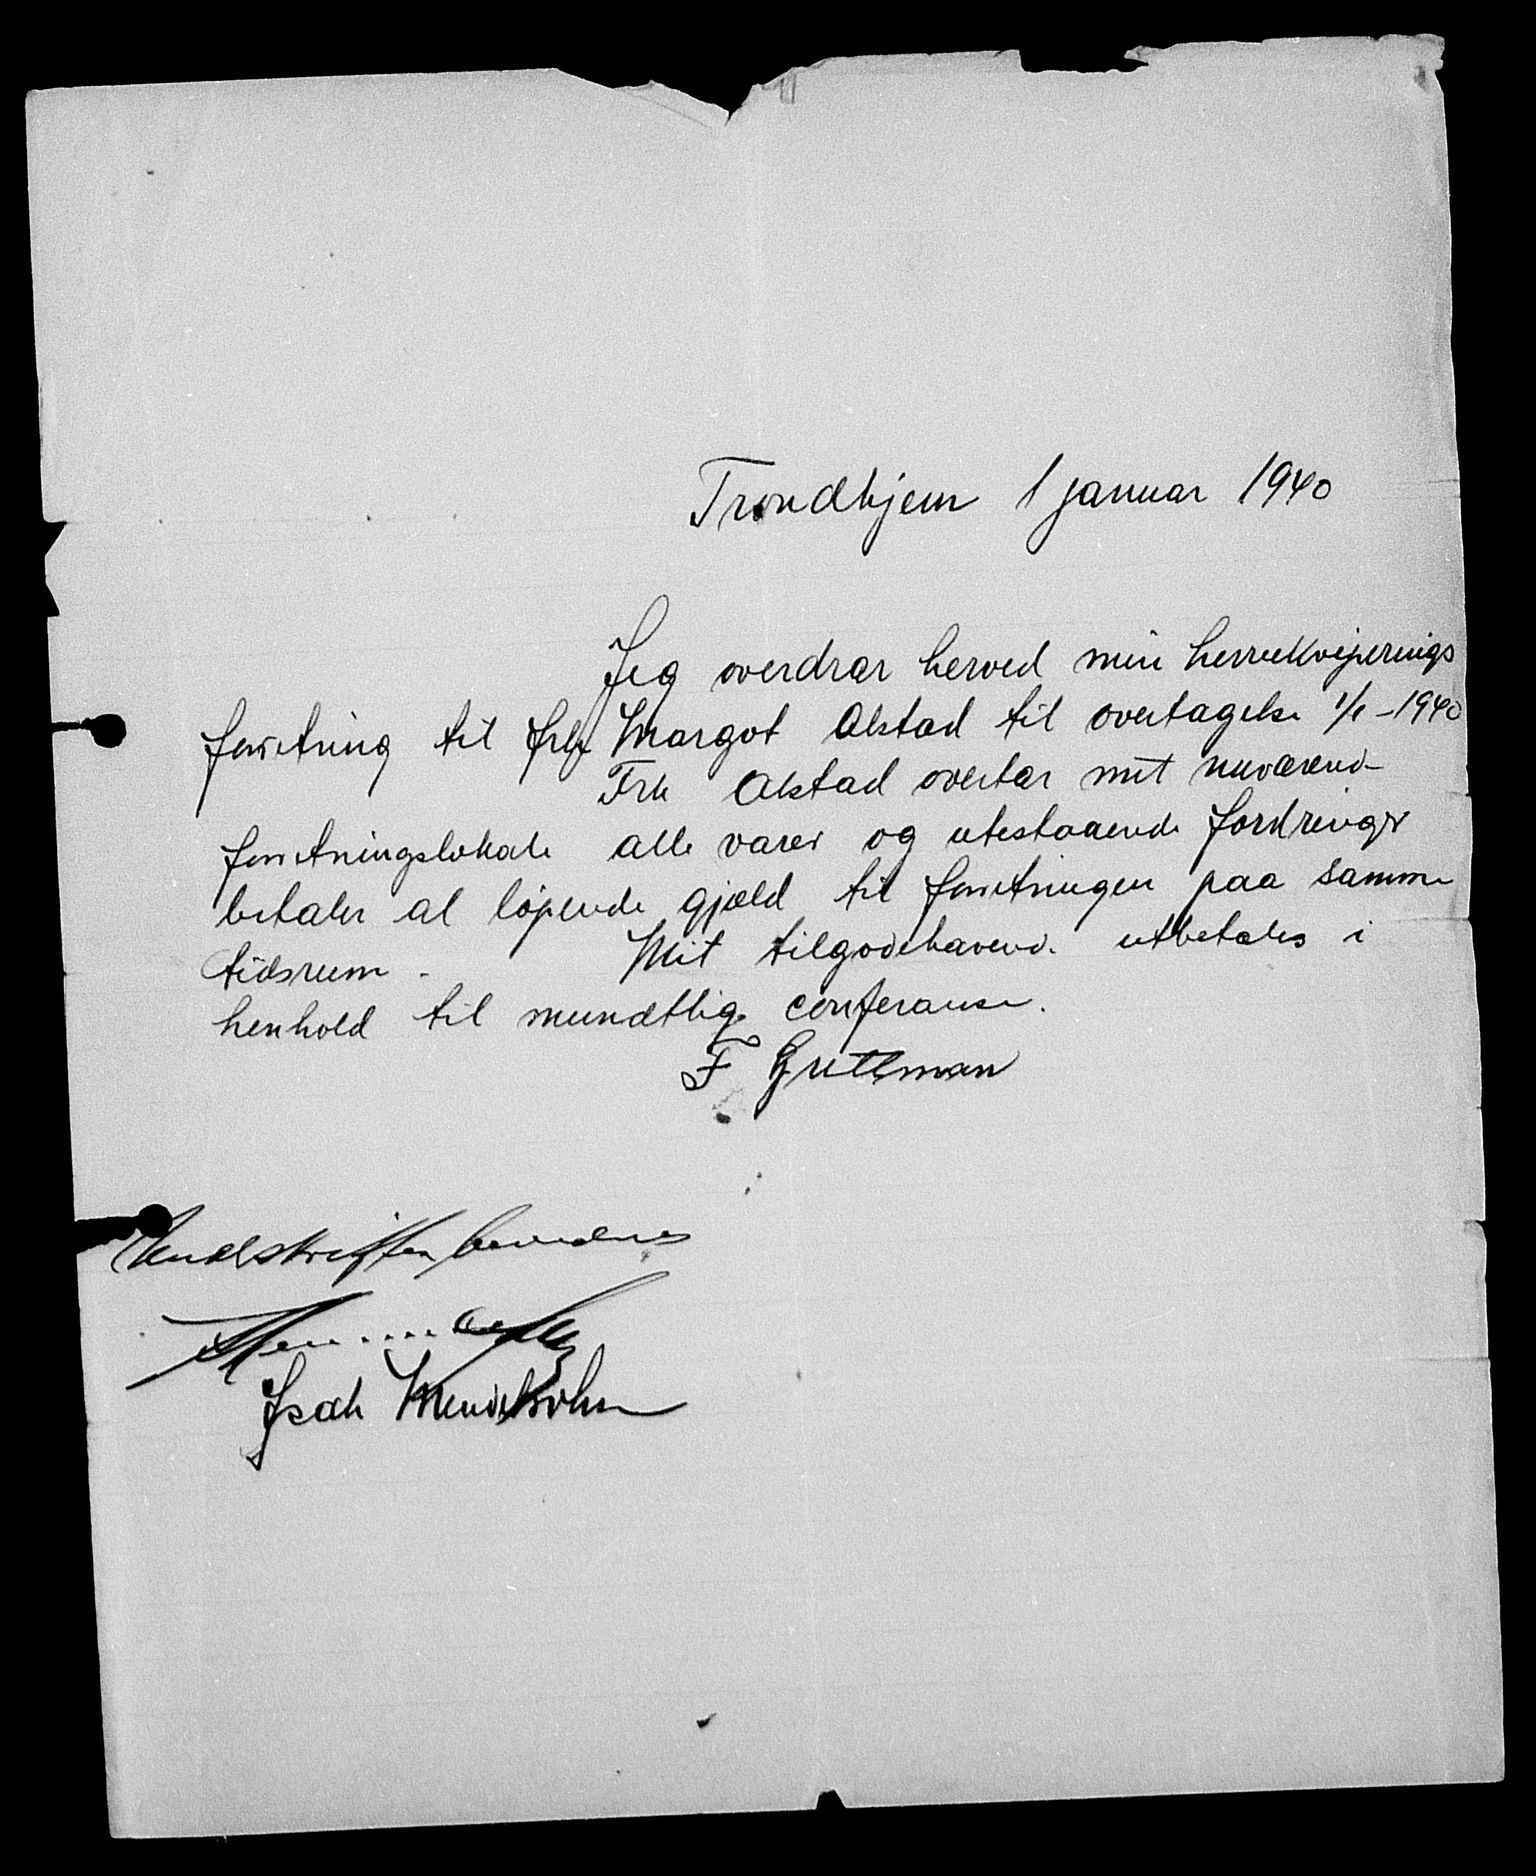 Trondhjem 1 januar 1940
Jeg overdrar herved min herrekviperings
forretning til frk Margot Alstad til overtagelse 1/1 - 1940
Frk Alstad overtar mit nuværend
forretningslokale alle varer og utestaaende fordringer
betaler al løpende gjæld til forretningen paa samme
tidsrum. Mit tilgodehavend. utbetales i
henhold til mundtlig conferanse.
F Grittman
Underskriften bevidnes
Isak Mendelsohn